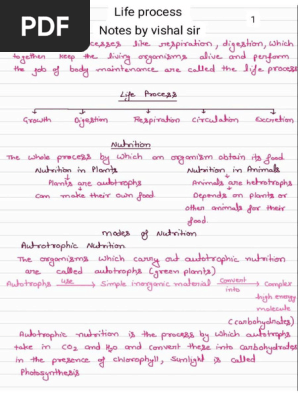 PDF
Life process
1
Notes by vishal sir
cesses like respiration, digestion, which
together keep the living organisms alive and perform
the job of body maintenance are called the life process
Life Process
Growth Digestion Respiration Circulation Excretion
Nutrition
The whole process by which an organism obtain its food
Nutrition in Plants Nutrition in Animals
Plants are autotrophs Animals are hetrotrophs
Can make their own food Depends on plants or
other animals for their
food.
modes of Nutrition
Autrotrophic Nutrition
The organisms which carry out autotrophic nutrition
are called autotrophs (green plants)
Autotrophs use Simple inorganic material Convert into Complex
high energy
molecule
(carbohydrates)
Autotrophic nutrition is the process by which autotrophs
take in CO2 and H2O and convert these into carbohydrates
in the presence of chlorophyll, sunlight is called
Photosynthesis